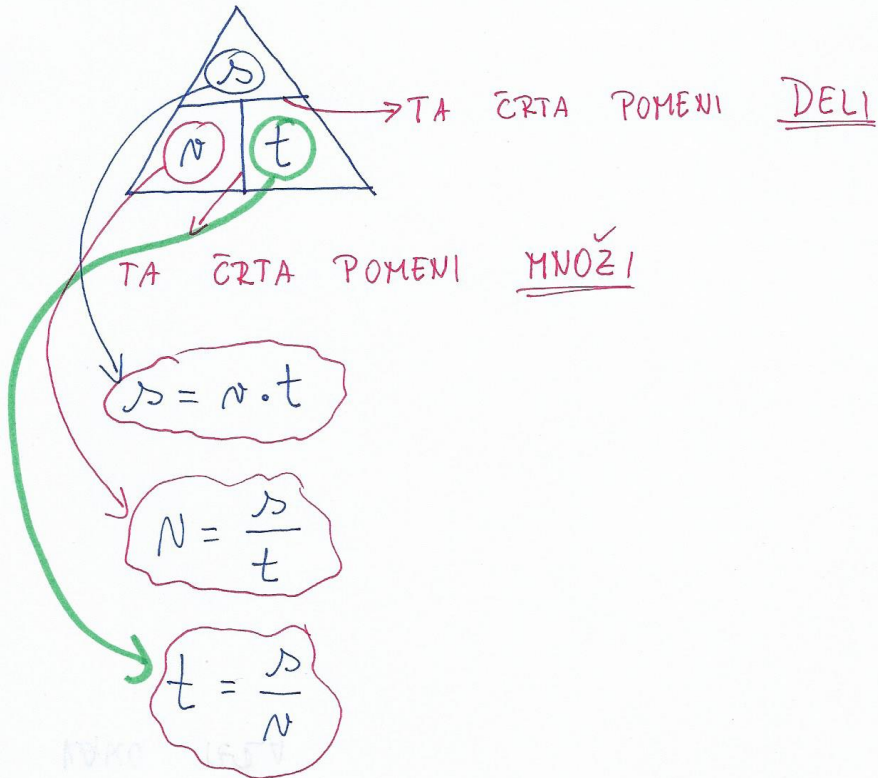 s
v t
TA ČRTA POMENI DELI
TA ČRTA POMENI MNOŽI
s = v · t
v = s/t
t = s/v